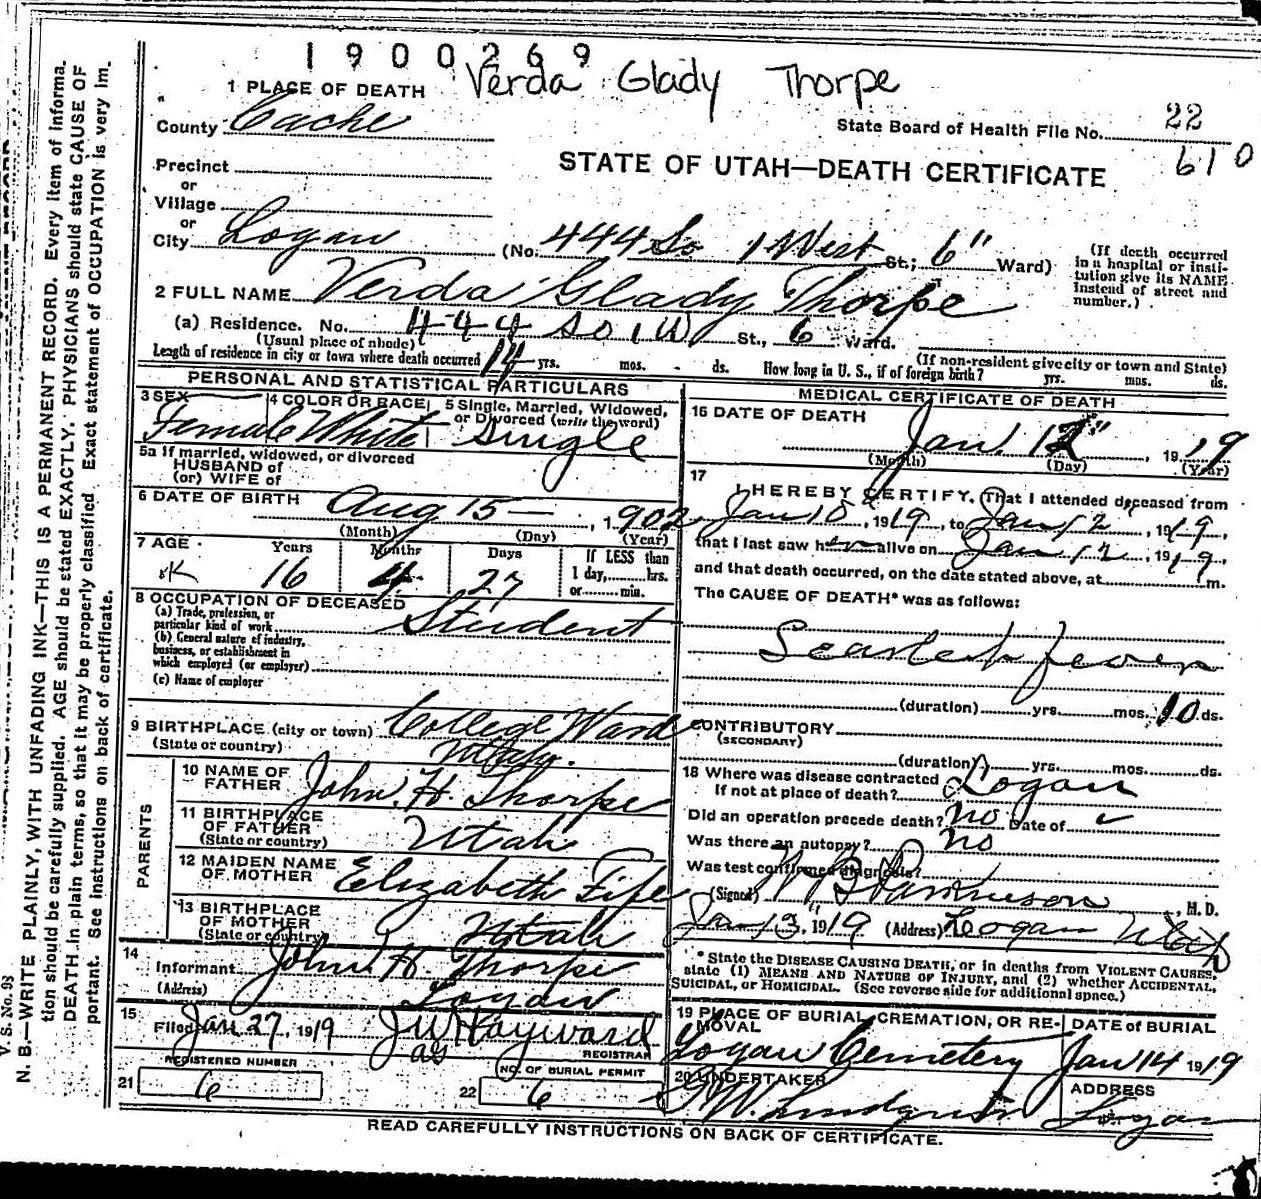 1900269
Verda Glady Thorpe
1 PLACE OF DEATH
County Cache
State Board of Health File No. 22
610
STATE OF UTAH—DEATH CERTIFICATE
Precinct
or
Village
or
City Logan (No. 444 So 1 West St.; 6" Ward)
(If death occurred in a hospital or institution give its NAME instead of street and number.)
2 FULL NAME Verda Glady Thorpe
(a) Residence. No. 444 So 1 W St., 6 Ward.
(Usual place of abode)
(If non-resident give city or town and State)
Length of residence in city or town where death occurred 14 yrs. mos. - ds. How long in U. S., if of foreign birth? yrs. mos. ds.
PERSONAL AND STATISTICAL PARTICULARS
3 SEX Female
4 COLOR OR RACE White
5 Single, Married, Widowed, or Divorced (write the word) Single
5a If married, widowed, or divorced
HUSBAND of
(or) WIFE of
6 DATE OF BIRTH Aug 15 — , 1902
(Month) (Day) (Year)
7 AGE Years Months Days If LESS than
OK 16 4 27 1 day, hrs.
or min.
8 OCCUPATION OF DECEASED
(a) Trade, profession, or particular kind of work Student
(b) General nature of industry, business, or establishment in which employed (or employer)
(c) Name of employer
9 BIRTHPLACE (city or town) College Ward
(State or country) Utah.
PARENTS
10 NAME OF FATHER John. H. Thorpe
11 BIRTHPLACE OF FATHER (State or country) Utah
12 MAIDEN NAME OF MOTHER Elizabeth Fife
13 BIRTHPLACE OF MOTHER (State or country) Utah
14 Informant John. H Thorpe
(Address) Logan
15 Filed Jan 27, 1919 J W Hayward
REGISTRAR
REGISTERED NUMBER NO. OF BURIAL PERMIT
21 6 22 6
MEDICAL CERTIFICATE OF DEATH
16 DATE OF DEATH Jan. 12" , 1919
(Month) (Day) (Year)
17
I HEREBY CERTIFY, That I attended deceased from
Jan 10, 1919, to Jan 12, 1919,
that I last saw her alive on Jan 12, 1919,
and that death occurred, on the date stated above, at m.
The CAUSE OF DEATH* was as follows:
Scarlet fever
(duration) yrs. mos. 10 ds.
CONTRIBUTORY
(SECONDARY)
(duration) yrs. mos. ds.
18 Where was disease contracted
If not at place of death? Logan
Did an operation precede death? no Date of
Was there an autopsy? no
Was test confirmed diagnosis?
(Signed) W B Parkinson , M. D.
Jan 13, 1919 (Address) Logan Utah
* State the DISEASE CAUSING DEATH, or in deaths from VIOLENT CAUSES, state (1) MEANS AND NATURE OF INJURY, and (2) whether ACCIDENTAL, SUICIDAL, or HOMICIDAL. (See reverse side for additional space.)
19 PLACE OF BURIAL, CREMATION, OR REMOVAL Logan Cemetery
DATE OF BURIAL Jan 14 1919
20 UNDERTAKER Lindquist
ADDRESS Logan
READ CAREFULLY INSTRUCTIONS ON BACK OF CERTIFICATE.
V. S. No. 95
N. B.—WRITE PLAINLY, WITH UNFADING INK—THIS IS A PERMANENT RECORD. Every item of information should be carefully supplied. AGE should be stated EXACTLY. PHYSICIANS should state CAUSE OF DEATH in plain terms, so that it may be properly classified. Exact statement of OCCUPATION is very important. See instructions on back of certificate.